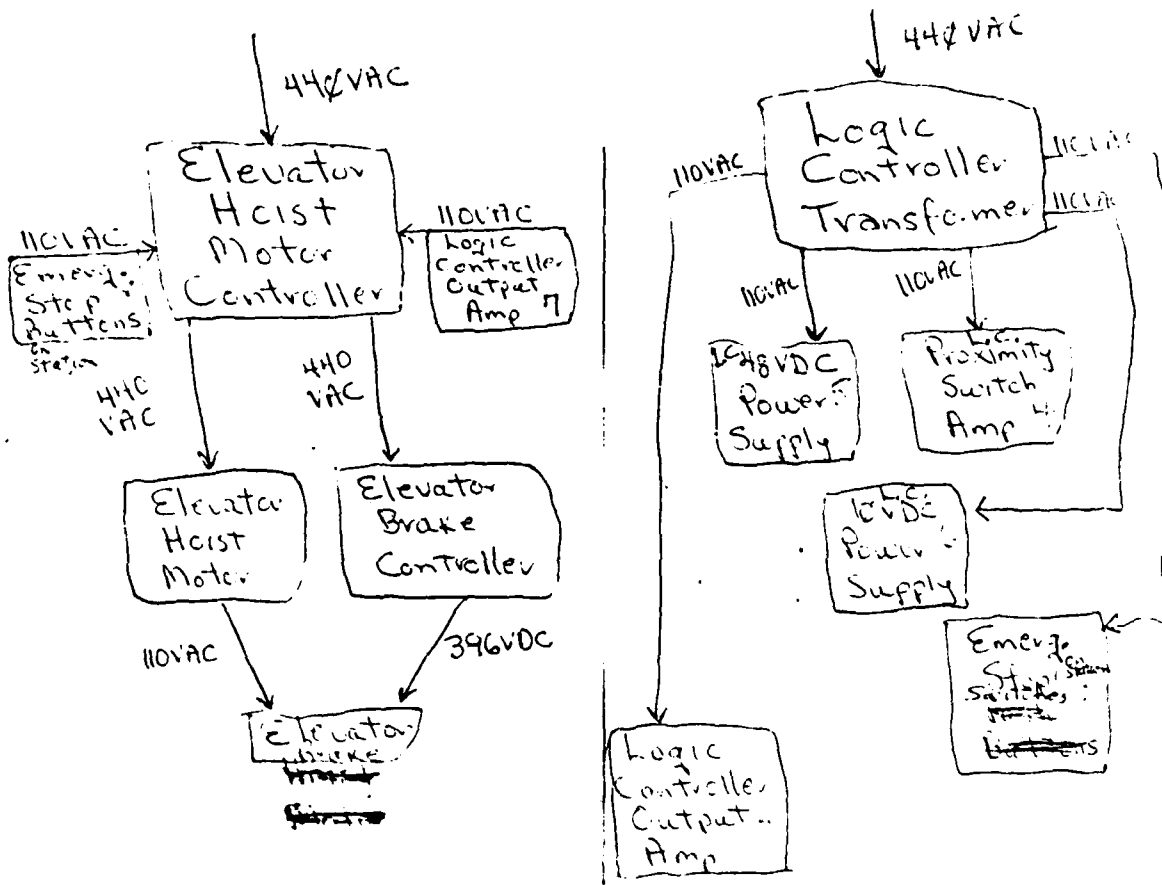 440 VAC
Elevator
Hoist
Motor
Controller
110VAC
Emerg.
Stop
Buttons
on
Station
110VAC
Logic
Controller
Output
Amp 7
440
VAC
440
VAC
Elevator
Hoist
Motor
Elevator
Brake
Controller
110VAC
396VDC
Elevator
Brake
440 VAC
Logic
Controller
Transformer
110VAC
110VAC
110VAC
110VAC
110VAC
LC 48 VDC
Power
Supply
L.C.
Proximity
Switch
Amp 4
L.C.
VDC
Power
Supply
Emerg.
Stop on Station
Switches
Logic
Controller
Output
Amp